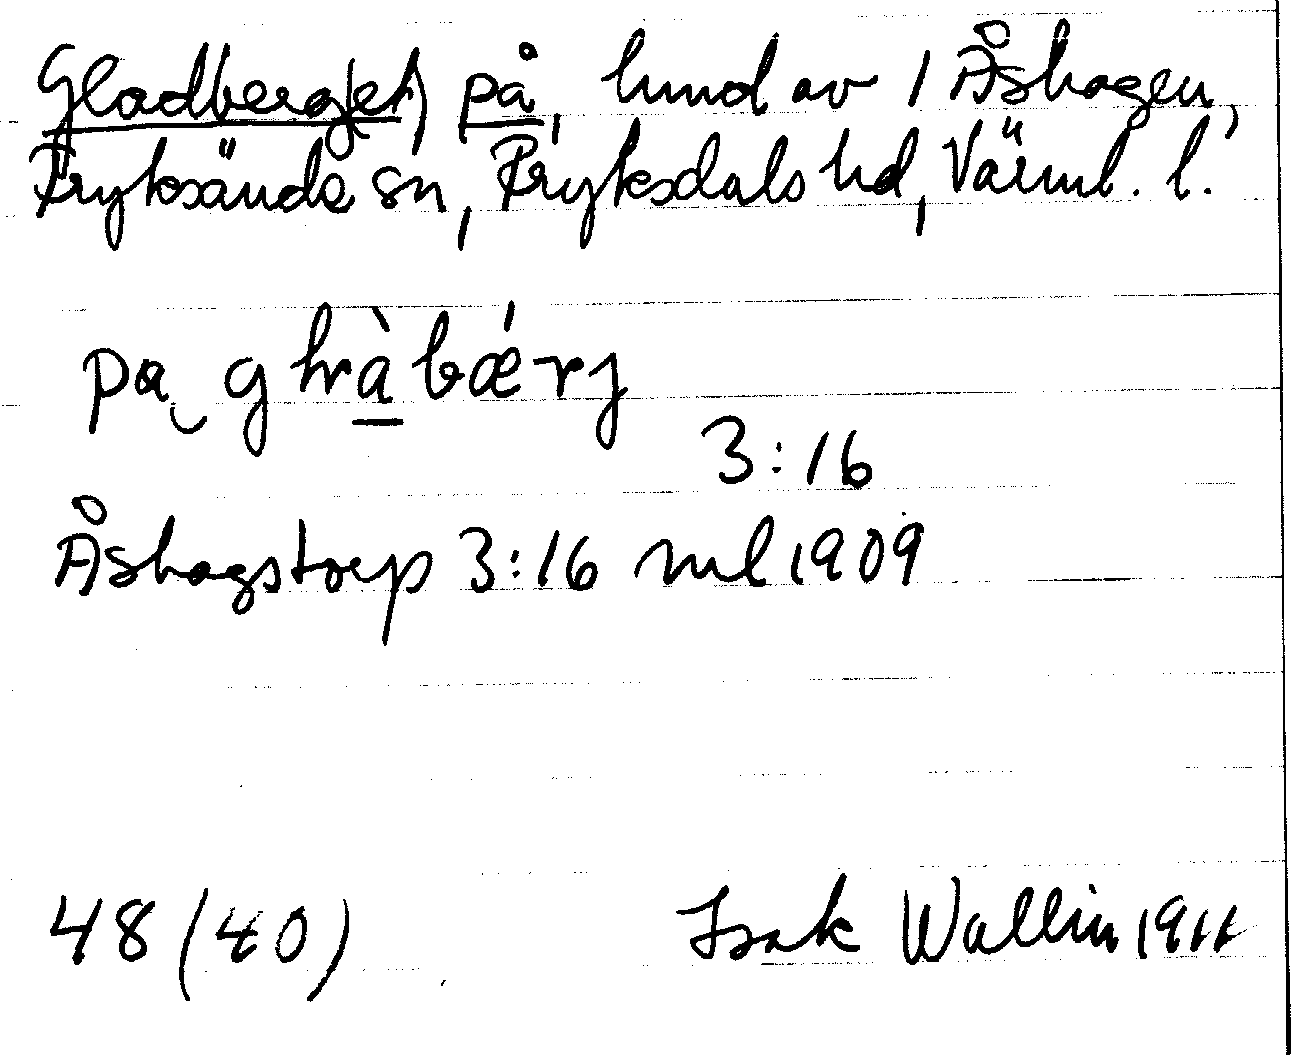 Gladberg(et) på, hmd av 1 Åshagen,
Fryksände sn, Fryksdals hd, Värml. l.
pa ghràbǽrj
3:16
Åshagstorp 3:16 ml 1909
48 (40) Isak Wallin 1911